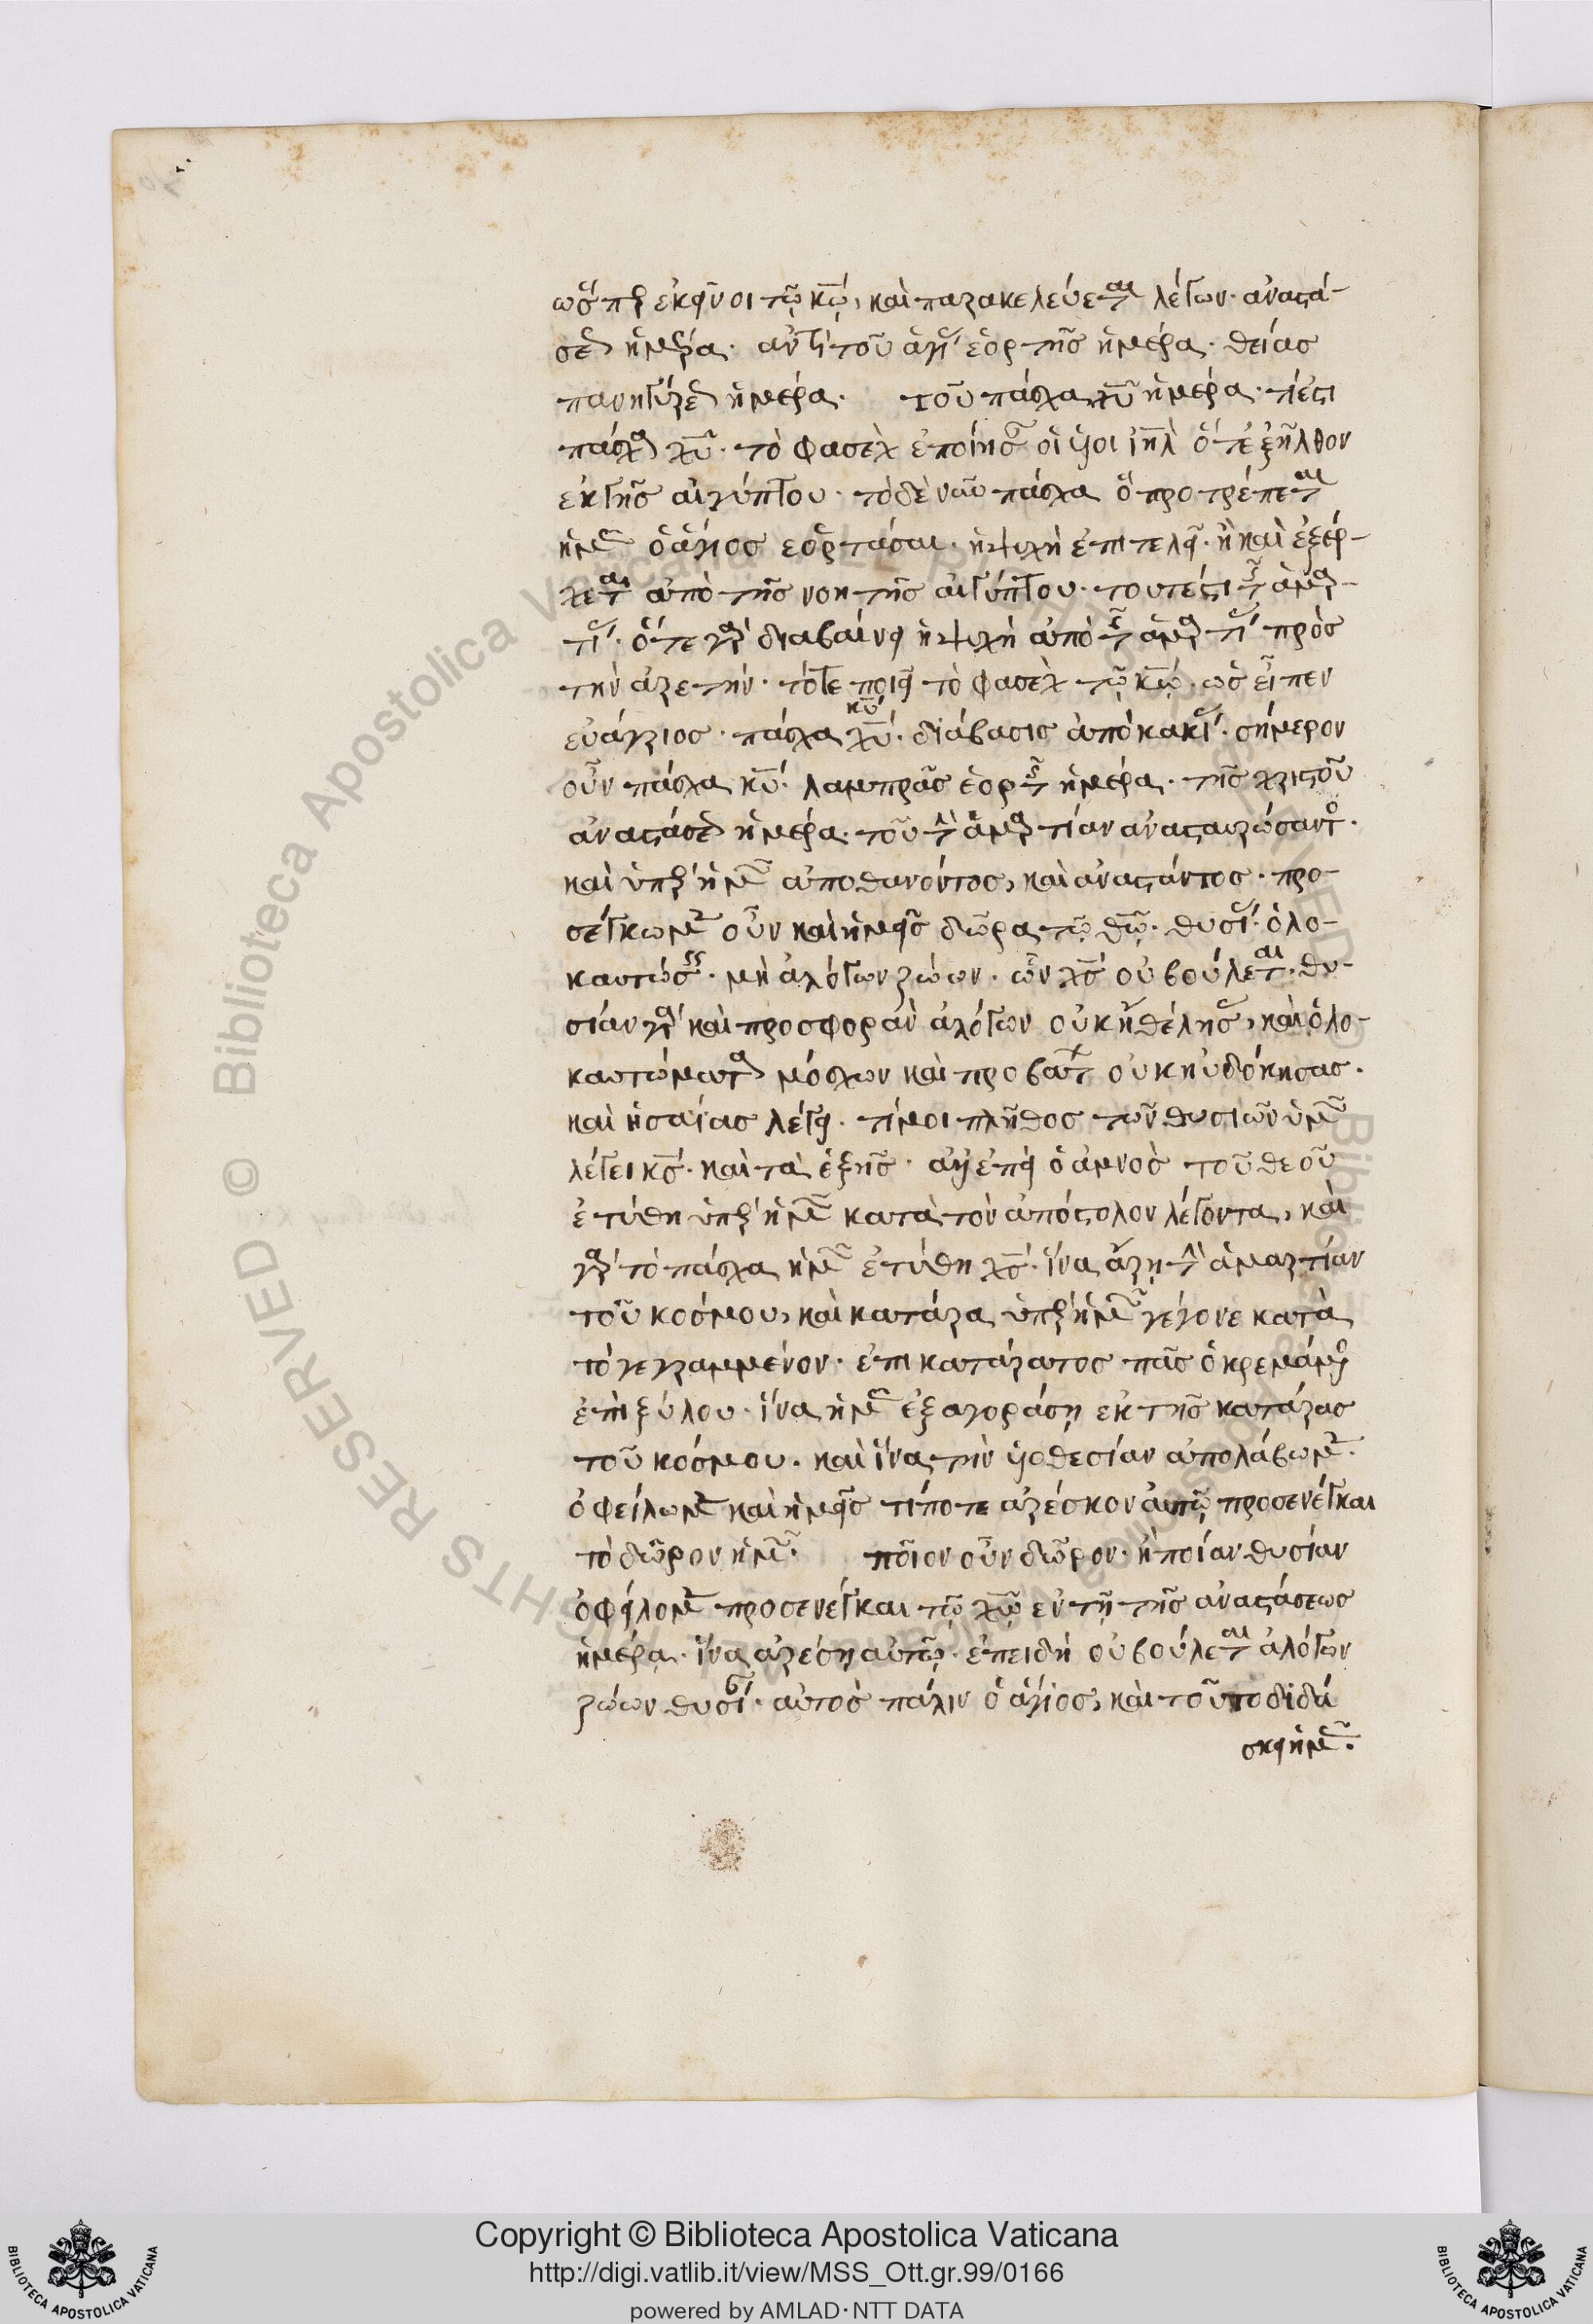 ὥσπερ ἐκεῖνοι τῷ κῷ, καὶ παρακελεύεται λέγων· ἀναστά-
σεως ἡμέρα· ἀντὶ τοῦ ἁγίας ἑορτῆς ἡμέρα· θείας
πανηγύρεως ἡμέρα· τοῦ πάσχα χῦ ἡμέρα· τί ἐστι
πάσχα χῦ· τὸ φασὲχ ἐποίησαν οἱ υἱοὶ ιηλ ὅτε ἐξῆλθον
ἐκ τῆς αἰγύπτου· τὸ δὲ νῦν πάσχα ὃ προτρέπεται
ἡμᾶς ὁ ἅγιος ἑορτάσαι· ἡ ψυχὴ ἐπιτελεῖ· ἣ καὶ ἐξέρ-
χεται ἀπὸ τῆς νοητῆς αἰγύπτου· τουτέστι τῆς ἁμαρ-
τίας· ὅτε γὰρ διαβαίνει ἡ ψυχὴ ἀπὸ τῆς ἁμαρτίας πρὸς
τὴν ἀρετήν· τότε ποιεῖ τὸ φασὲχ τῷ κῷ· ὡς εἶπεν
εὐάγριος· πάσχα κῦ χῦ· διάβασις ἀπὸ κακίας· σήμερον
οὖν πάσχα κῦ· λαμπρᾶς ἑορτῆς ἡμέρα· τῆς χριστοῦ
ἀναστάσεως ἡμέρα· τοῦ τὴν ἁμαρτίαν ἀνασταυρώσαντος·
καὶ ὑπὲρ ἡμῶν ἀποθανόντος, καὶ ἀναστάντος· προ-
σέγκωμεν οὖν καὶ ἡμεῖς δῶρα τῷ θῷ· θυσίας· ὁλο-
καυτώσεις· μὴ ἀλόγων ζώων· ὧν χς οὐ βούλεται· θυ-
σίαν γὰρ καὶ προσφορὰν ἀλόγων οὐκ ἠθέλησας, καὶ ὁλο-
καυτώματα μόσχων καὶ προβάτων οὐκ ηὐδόκησας·
καὶ ἡσαΐας λέγει· τί μοι πλῆθος τῶν θυσιῶν ὑμῶν
λέγει κς· καὶ τὰ ἑξῆς· ἀλλ' ἐπεὶ ὁ ἀμνὸς τοῦ θεοῦ
ἐτύθη ὑπὲρ ἡμῶν κατὰ τὸν ἀπόστολον λέγοντα, καὶ
γὰρ τὸ πάσχα ἡμῶν ἐτύθη χς· ἵνα ἄρῃ τὴν ἁμαρτίαν
τοῦ κόσμου, καὶ κατάρα ὑπὲρ ἡμῶν γέγονε κατὰ
τὸ γεγραμμένον· ἐπικατάρατος πᾶς ὁ κρεμάμενος
ἐπὶ ξύλου· ἵνα ἡμᾶς ἐξαγοράσῃ ἐκ τῆς κατάρας
τοῦ κόσμου· καὶ ἵνα τὴν υἱοθεσίαν ἀπολάβωμεν·
ὀφείλωμεν καὶ ἡμεῖς τίποτε ἀρέσκον αὐτῷ προσενέγκαι
τὸ δῶρον ἡμῶν· ποῖον οὖν δῶρον· ἢ ποίαν θυσίαν
ὀφείλομεν προσενέγκαι τῷ χῷ ἐν τῇ τῆς ἀναστάσεως
ἡμέρᾳ· ἵνα ἀρέσῃ αὐτῷ· ἐπειδὴ οὐ βούλεται ἀλόγων
ζώων θυσίαν· αὐτὸς πάλιν ὁ ἅγιος, καὶ τοῦτο διδά
σκει ἡμᾶς·
Copyright © Biblioteca Apostolica Vaticana
http://digi.vatlib.it/view/MSS_Ott.gr.99/0166
powered by AMLAD·NTT DATA